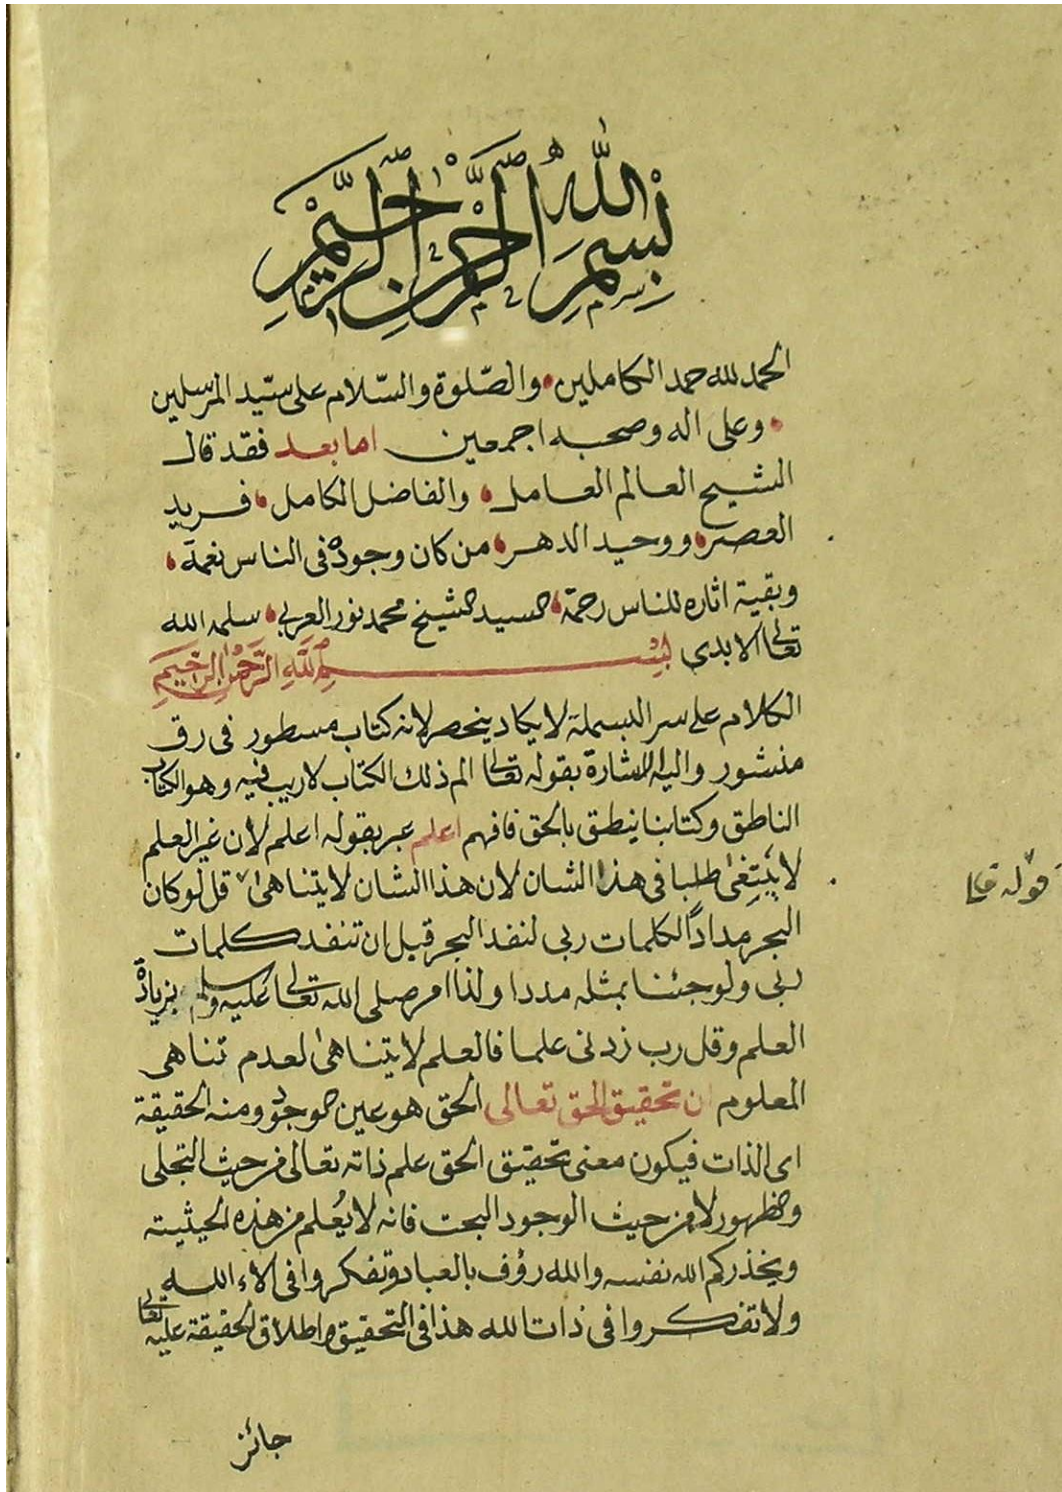 بسم الله الرحمن الرحيم
الحمد لله حمد الكاملين والصّلوة والسّلام على سيّد المرسلين
وعلى اله وصحبه اجمعين اما بعد فقد قال
الشيخ العالم العامل والفاضل الكامل فريد
العصر ووحيد الدهر من كان وجوده فى الناس نعمة
وبقية اثاره للناس رحمة السيد الشيخ محمد نور العربي سلمه الله
تعالى الابدى بِسْمِ اللَّهِ الرَّحْمنِ الرَّحِيمِ
الكلام على سر البسملة لا يكاد ينحصر لانه كتاب مسطور فى رق
منشور واليه الاشارة بقوله تعالى الم ذلك الكتاب لا ريب فيه وهو الكتاب
الناطق وكتابنا ينطق بالحق فافهم اعلم عبر بقوله اعلم لأن غير العلم
لا يَبْتِغى طلبا فى هذا الشان لأن هذا الشان لا يتناهى قل لو كان
قوله تعا
البحر مداداً لكلمات ربى لنفد البحر قبل ان تنفد كلمات
ربى ولو جئنا بمثله مددا ولذا امر صلى الله تعالى عليه وسلم بزيادة
العلم وقل رب زدنى علما فالعلم لا يتناهى لعدم تناهى
المعلوم ان تحقيق الحق تعالى الحق هو عين الموجود ومنه الحقيقة
اى الذات فيكون معنى تحقيق الحق علم ذاته تعالى من حيث التجلى
والظهور لا من حيث الوجود البحت فانه لا يُعلم من هذه الحيثيته
ويحذركم الله نفسه والله رؤف بالعباد وتفكروا فى الاء الله
ولا تفكروا فى ذات الله هذا فى التحقيق واطلاق الحقيقة عليه تعالى
جائز